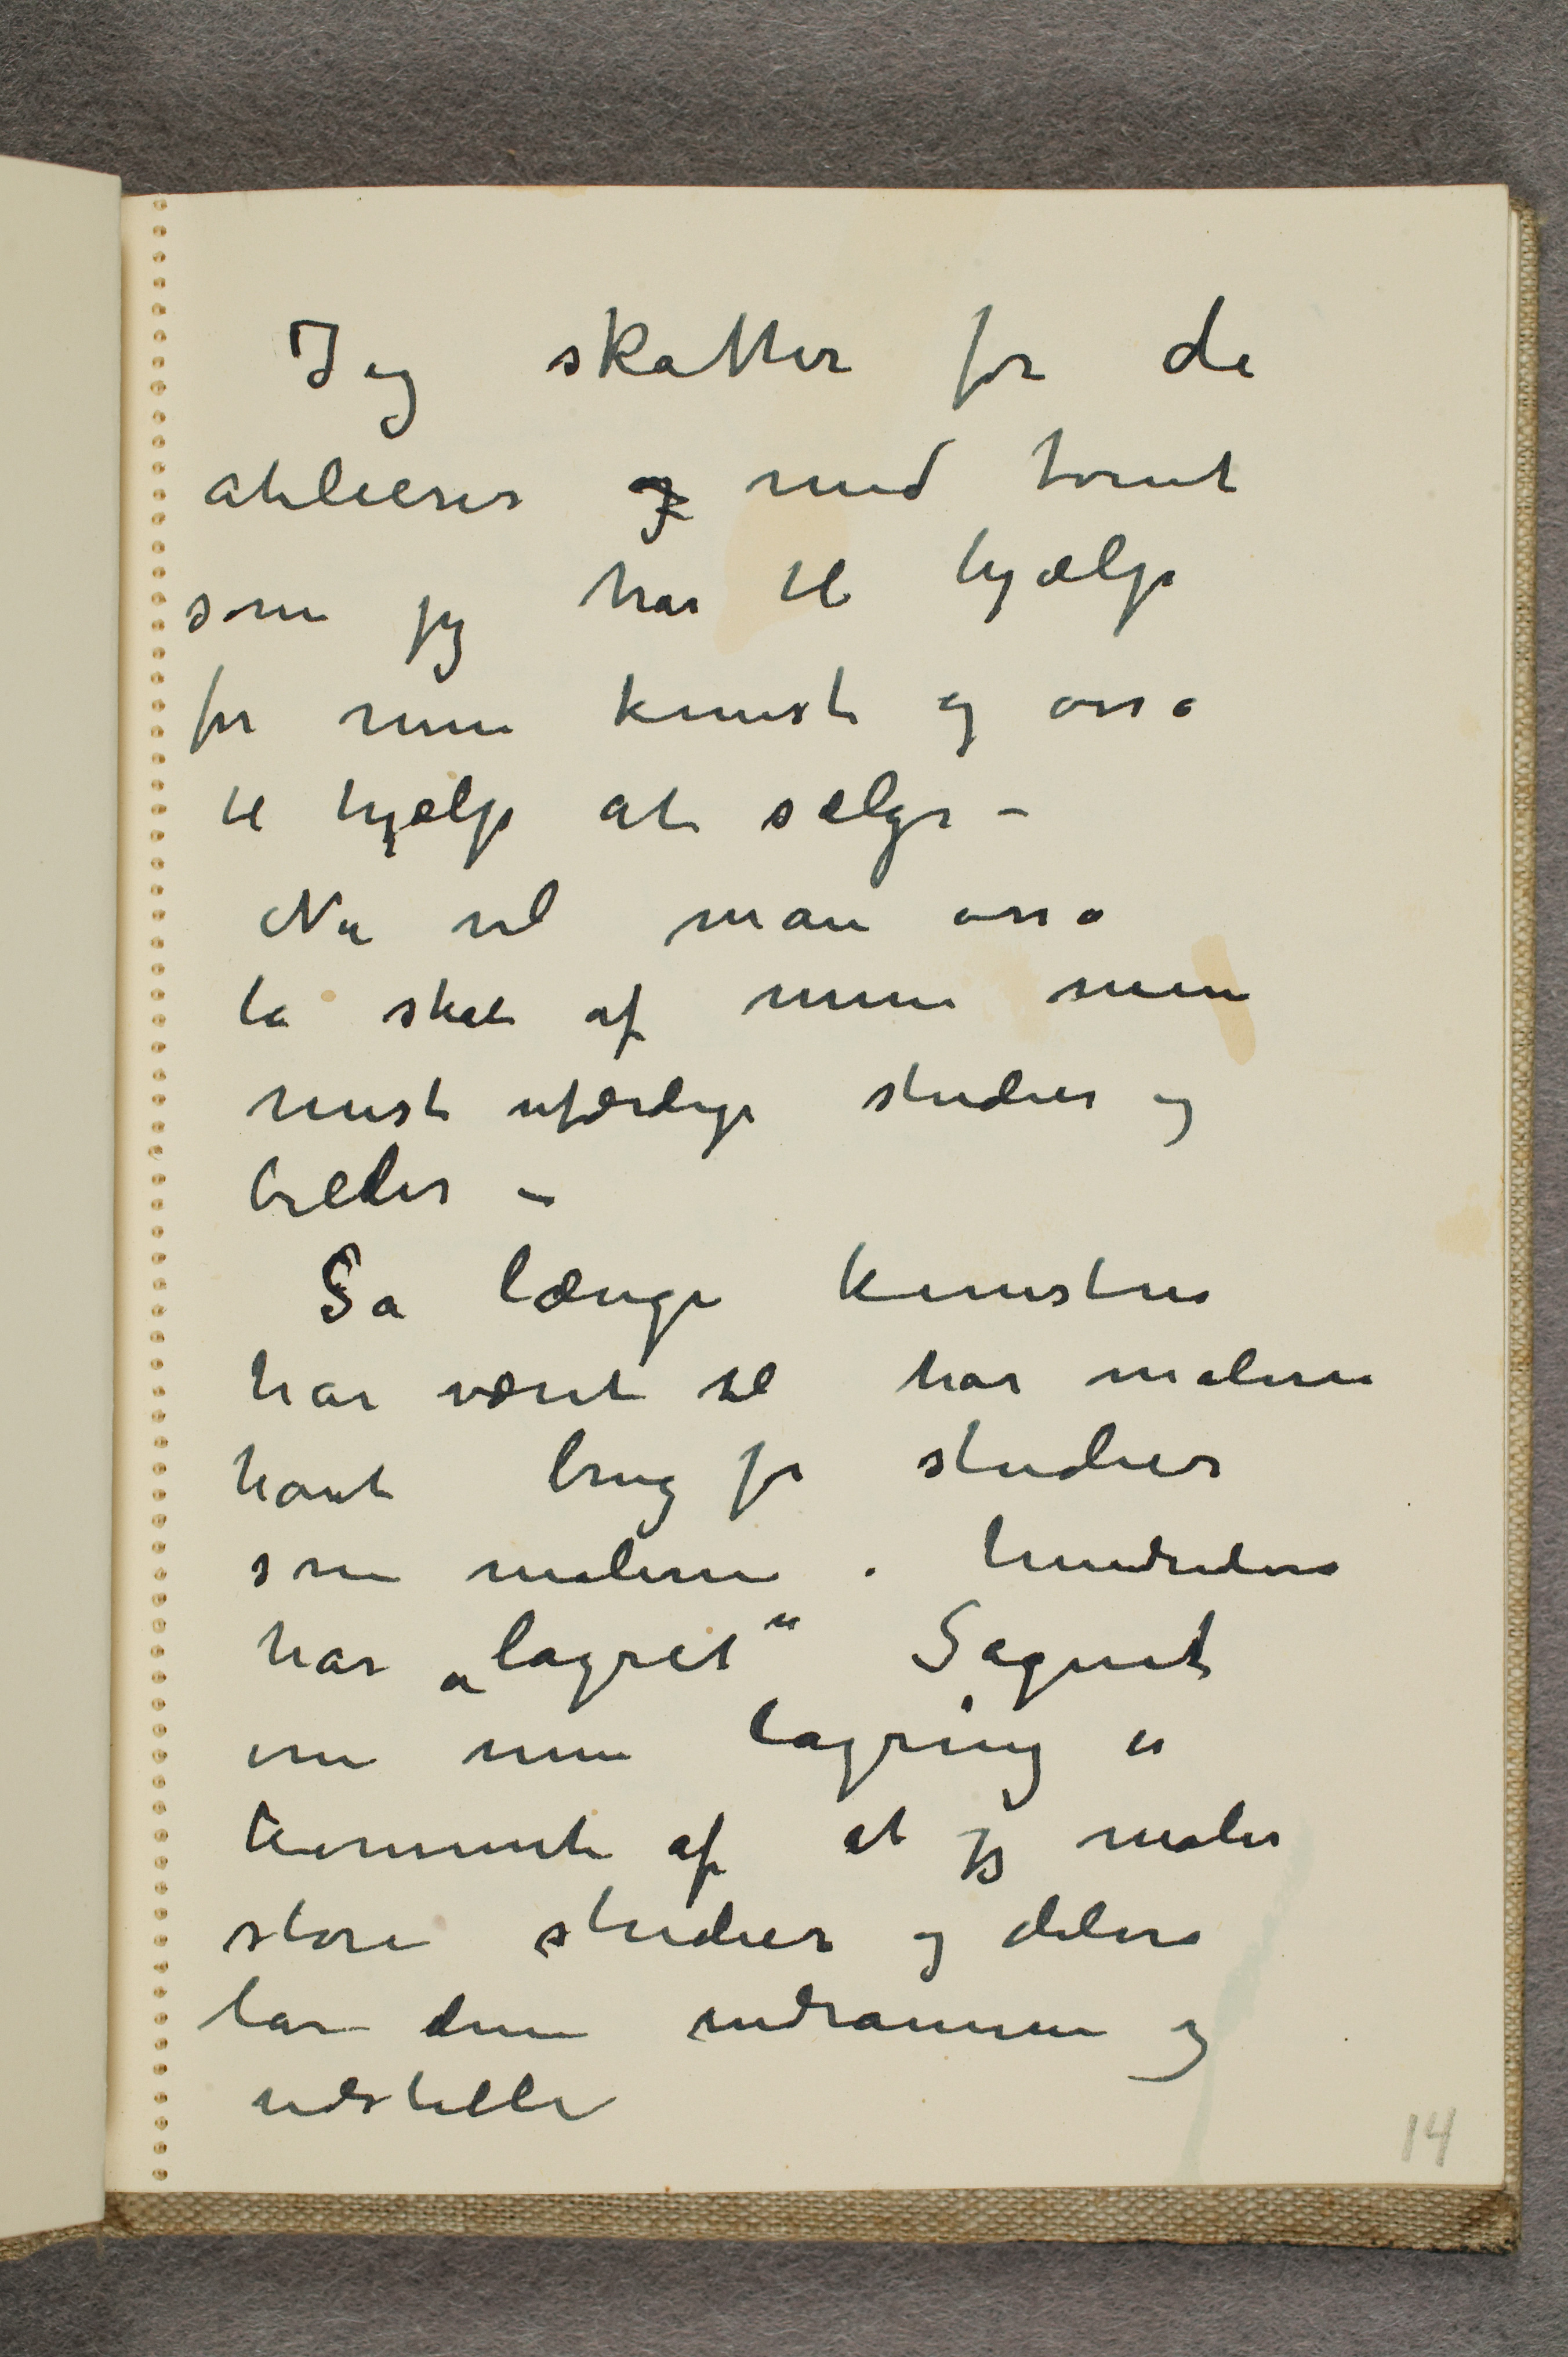 Jeg skatter for de
atelierer og med tomt
som jeg har til hjælp
for min kunst og ossa
til hjælp at sælge –
Nu vil man ossa
ta skat af mine mine
mest ufærdige studier og
billeder –
Så længe kunsten
har været til har malerne
havt brug for studier
som malerne i hundreder
har „lagret“ Sagnet
om min lagring er
kommet af at jeg maler
store studier og delvis
lar dem indramme og
udstille
14